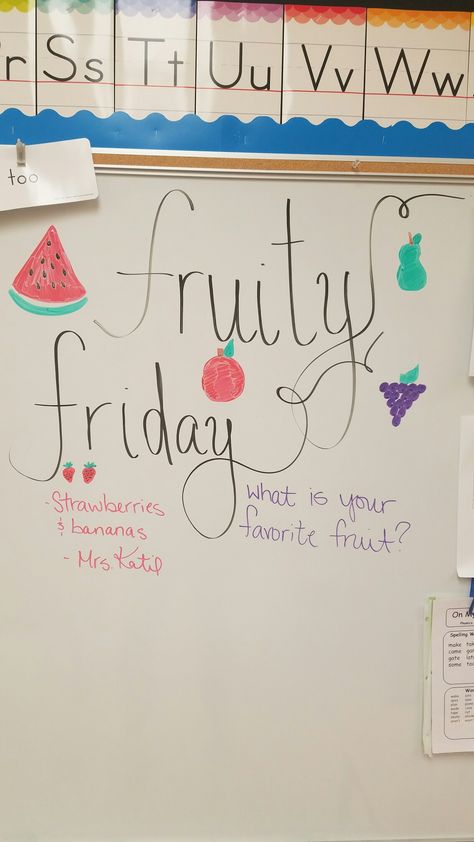 r Ss Tt Uu Vv Ww
too
fruity
friday
- Strawberries
& bananas
- Mrs. Katil
What is your
favorite fruit?
On M
Phonics
Spelling W
make tak
came gam
gate lat
some